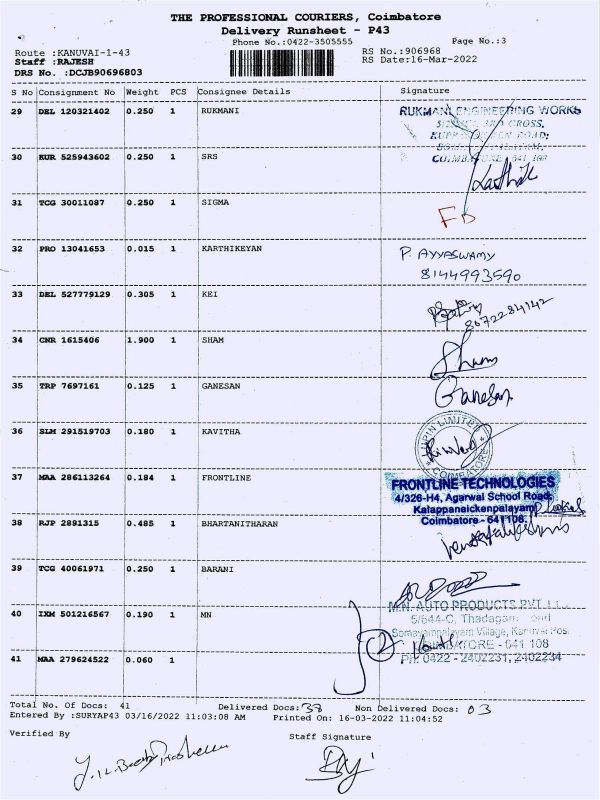 THE PROFESSIONAL COURIERS, Coimbatore
Delivery Runsheet - P43
Phone No.:0422-3505555
Page No.:3
Route :KANUVAI-1-43
RS No.:906968
Staff :RAJESH
RS Date:16-Mar-2022
DRS No. :DCJB90696803
S No Consignment No Weight PCS Consignee Details Signature
29 DEL 120321402 0.250 1 RUKMANI
RUKMANI ENGINEERING WORKS
CROSS,
ROAD;
641 108
30 KUR 525943602 0.250 1 SRS
31 TCG 30011087 0.250 1 SIGMA
FD
32 PRO 13041653 0.015 1 KARTHIKEYAN
P. AYYASWAMY
8144993590
33 DEL 527779129 0.305 1 KEI
8072284142
34 CNR 1615406 1.900 1 SHAM
Sham
35 TRP 7697161 0.125 1 GANESAN
Ganesan
36 SLM 291519703 0.180 1 KAVITHA
LUPIN LIMITED
COIMBATORE
37 MAA 286113264 0.184 1 FRONTLINE
FRONTLINE TECHNOLOGIES
4/326-H4, Agarwal School Road,
Kalappanaickenpalayam
Coimbatore - 641 108.
38 RJP 2891315 0.485 1 BHARTANITHARAN
39 TCG 40061971 0.250 1 BARANI
40 IXM 501216567 0.190 1 MN
M.N. AUTO PRODUCTS PVT.
5/644-C, Thadagam
Somayampalayam Village, Kanuvai Pos
COIMBATORE - 641 108
PH: 0422 - 2402231, 2402234
41 MAA 279624522 0.060 1
Total No. Of Docs: 41 Delivered Docs: 38 Non Delivered Docs: 03
Entered By :SURYAP43 03/16/2022 11:03:08 AM Printed On: 16-03-2022 11:04:52
Verified By
Staff Signature